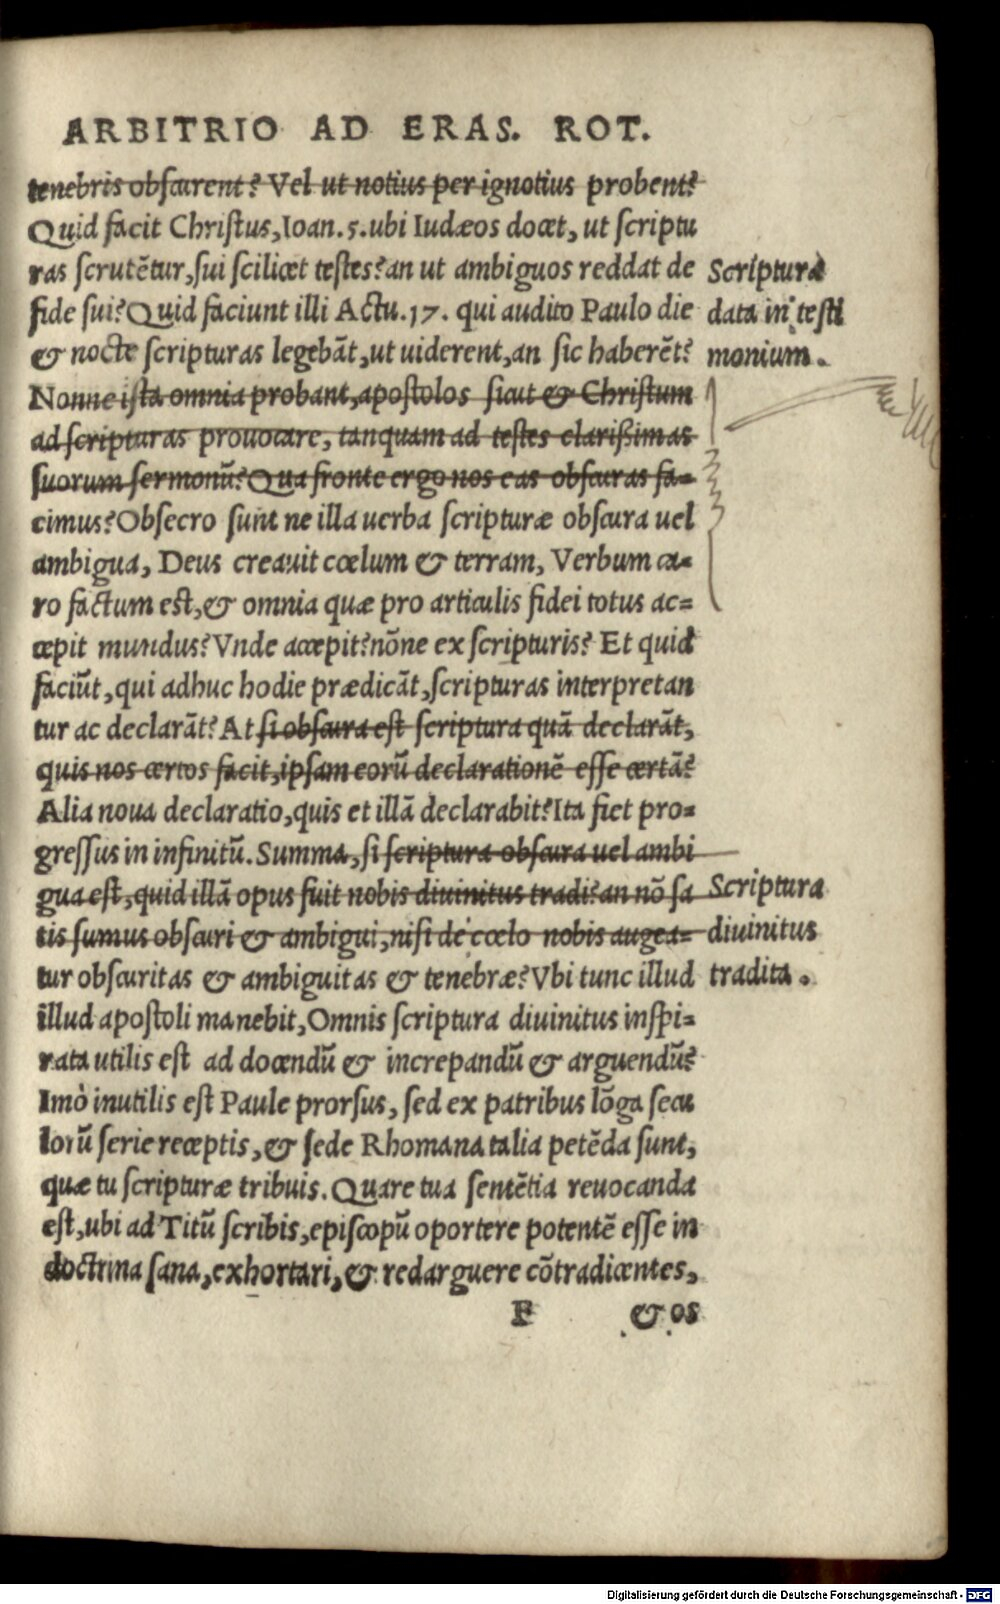 ARBITRIO AD ERAS. ROT.
tenebris obscurent? Vel ut notius per ignotius probent?
Quid facit Christus, Ioan. 5. ubi Iudæos docet, ut scriptu
ras scrutẽtur, sui scilicet testes? an ut ambiguos reddat de
fide sui? Quid faciunt illi Actu. 17. qui audito Paulo die
& nocte scripturas legebãt, ut uiderent, an sic haberẽt?
Nonne ista omnia probant, apostolos sicut & Christum
ad scripturas prouocare, tanquam ad testes clarißimas
suorum sermonũ? Qua fronte ergo nos eas obscuras fa=
cimus? Obsecro sunt ne illa uerba scripturæ obscura uel
ambigua, Deus creauit cœlum & terram, Verbum ca=
ro factum est, & omnia quæ pro articulis fidei totus ac=
cepit mundus? Vnde accepit? nõne ex scripturis? Et quid
faciũt, qui adhuc hodie prædicãt, scripturas interpretan
tur ac declarãt? At si obscura est scriptura quã declarãt,
quis nos certos facit, ipsam eorũ declarationẽ esse certã?
Alia noua declaratio, quis et illã declarabit? Ita fiet pro=
gressus in infinitũ. Summa, si scriptura obscura uel ambi
gua est, quid illã opus fuit nobis diuinitus tradi? an nõ sa
tis sumus obscuri & ambigui, nisi de cœlo nobis augea=
tur obscuritas & ambiguitas & tenebræ? Vbi tunc illud
illud apostoli manebit, Omnis scriptura diuinitus inspi=
rata utilis est ad docendũ & increpandũ & arguendũ?
Imò inutilis est Paule prorsus, sed ex patribus lõga secu
lorũ serie receptis, & sede Rhomana talia petẽda sunt,
quæ tu scripturæ tribuis. Quare tua sentẽtia reuocanda
est, ubi ad Titũ scribis, episcopũ oportere potentẽ esse in
doctrina sana, exhortari, & redarguere cõtradicentes,
F & os
Scriptura
data in testi
monium.
Scriptura
diuinitus
tradita.
Digitalisierung gefördert durch die Deutsche Forschungsgemeinschaft - DFG